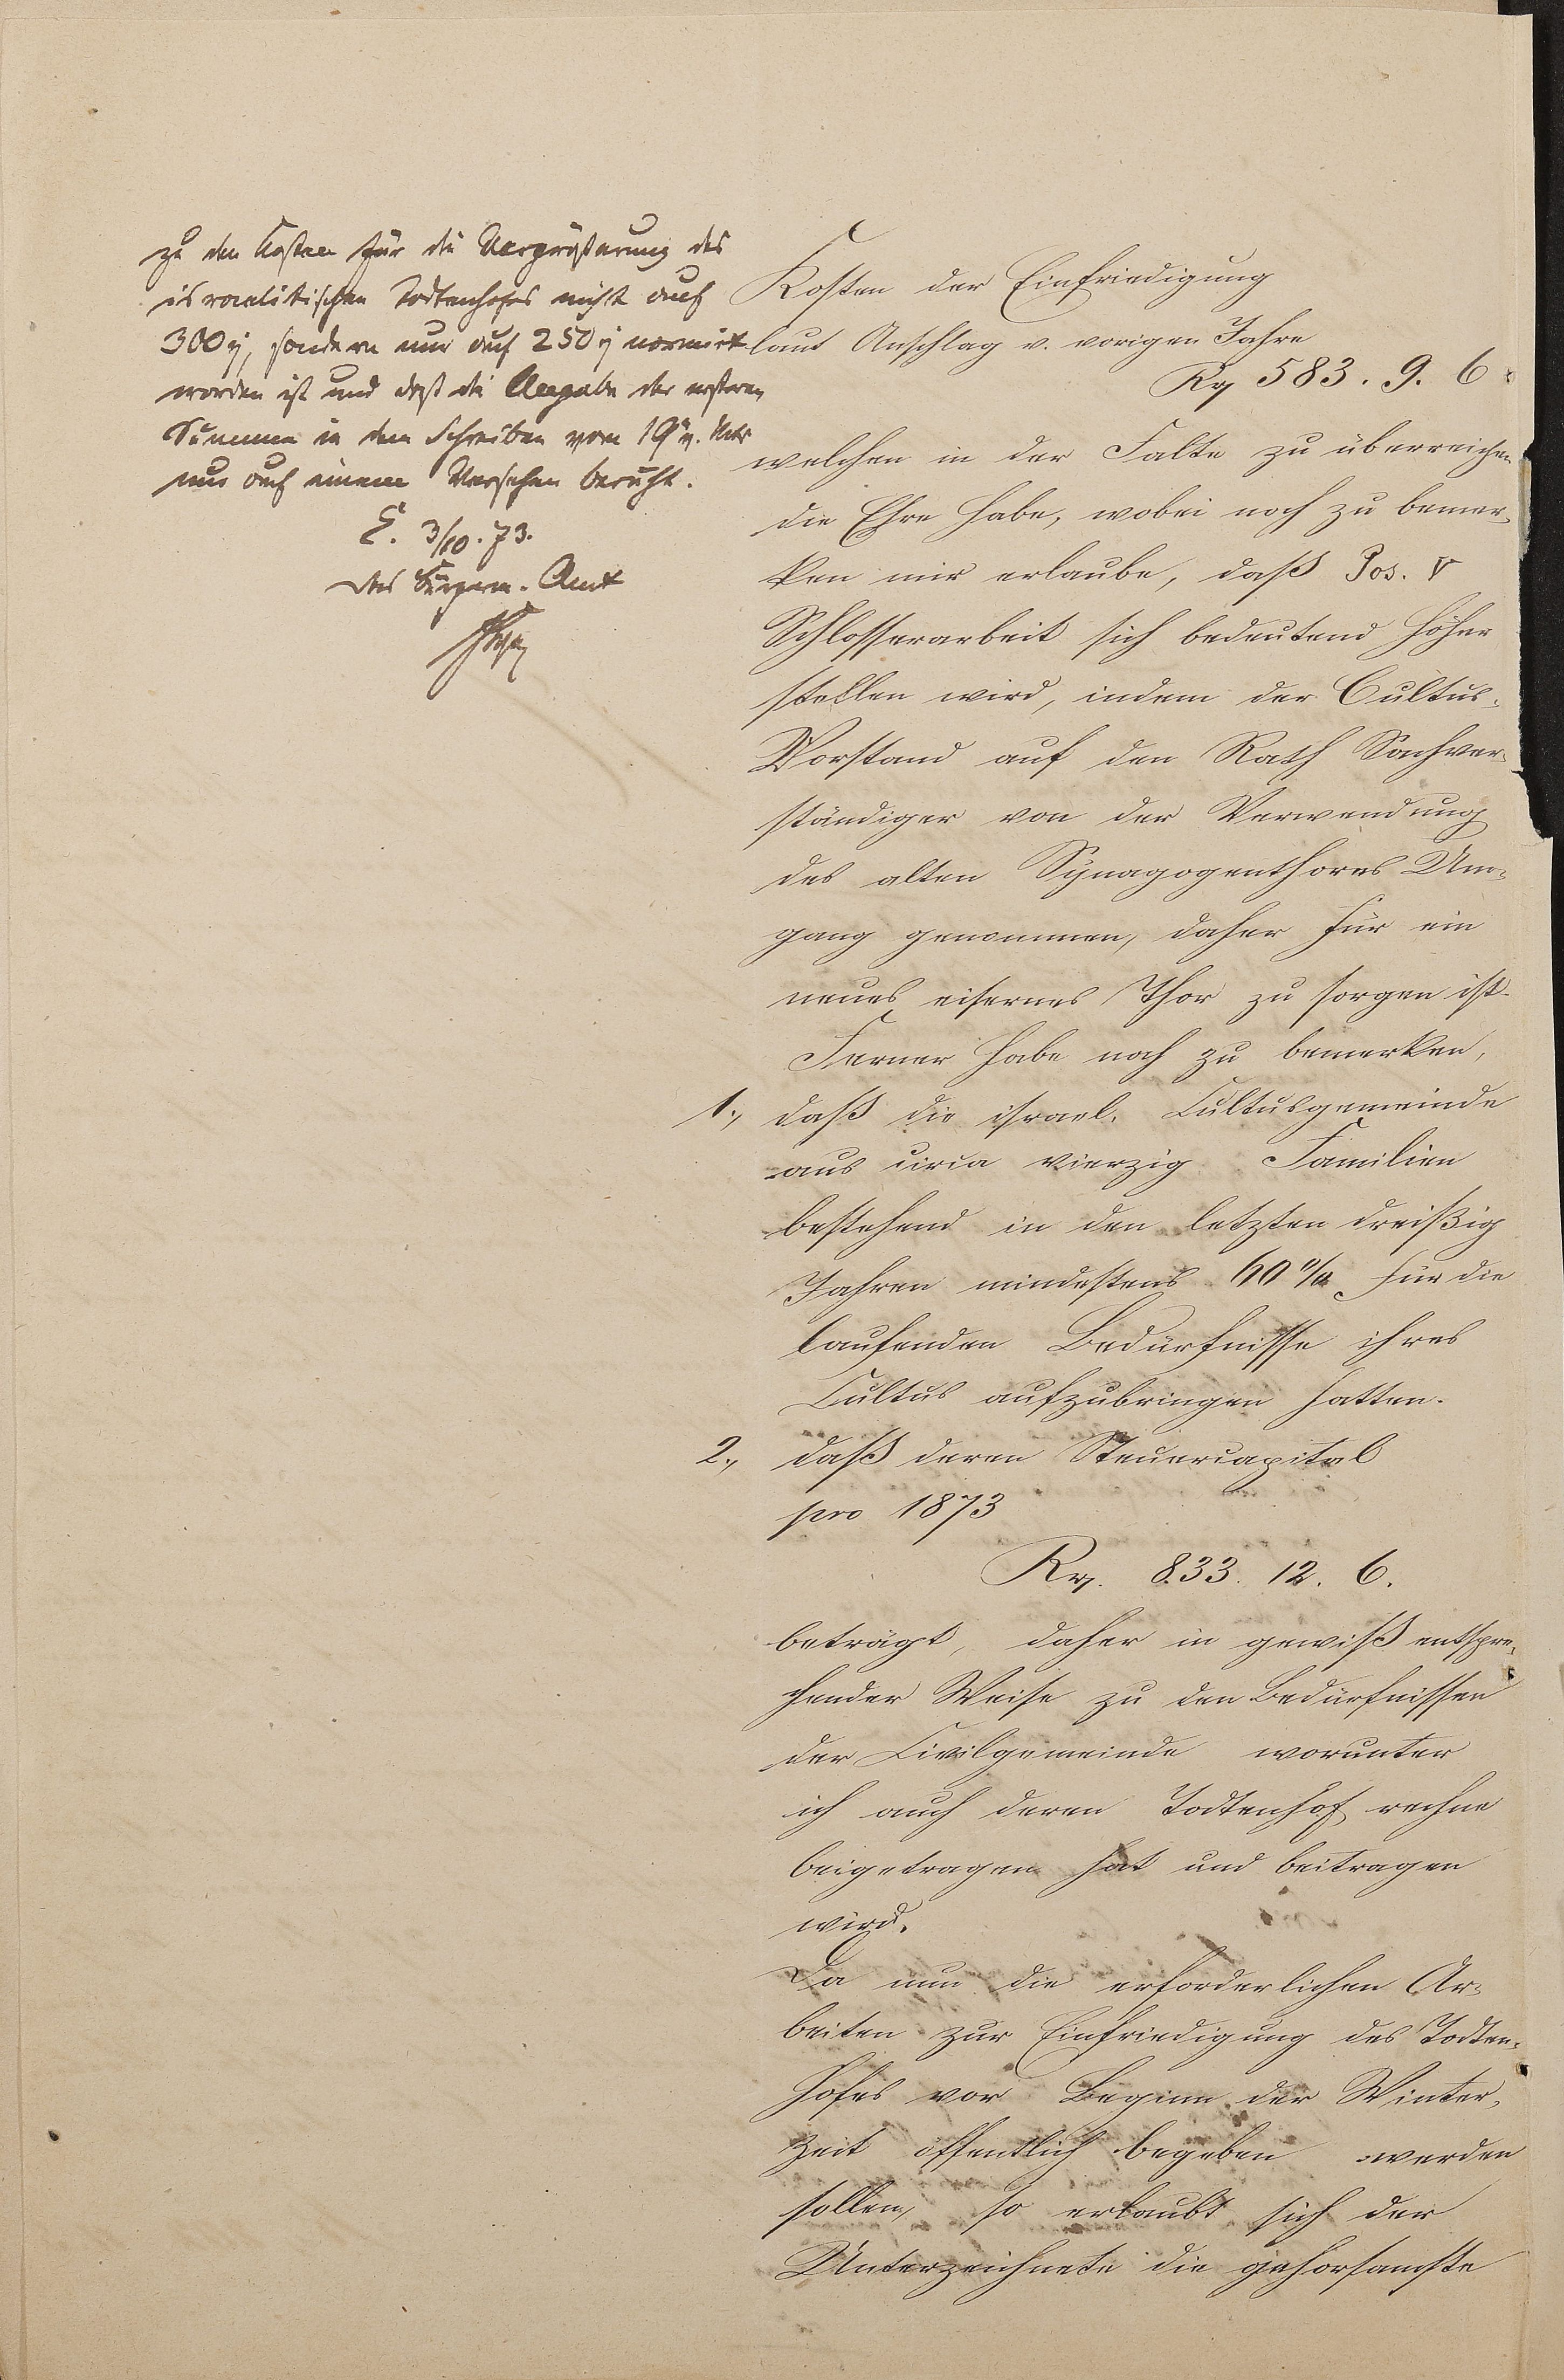 zu den Kosten für die Vergrößerung des
israelitischen Todtenhofes nicht auf
300 ֏, sondern nur auf 250 ֏ normirt
worden ist und daß die Angabe der ersteren
Summe in dem Schreiben vom 19 v. Mts
nur auf einem Versehen beruht.
E. 3/10. 73.
Das Bürgerm. Amt
Kosten der Einfriedigung
laut Anschlag v. vorigen Jahre
Rq 583. 9. 6
welchen in der Falte zu überreichen
die Ehre habe, wobei noch zu bemer-
ken mir erlaube, daß Pos. V
Schlosserarbeit sich bedeutend höher
stellen wird, indem der Cultus-
Vorstand auf den Rath Sachver-
ständiger von der Verwendung
des alten Synagogenthores Um-
gang genommen, daher für ein
neues eisernes Thor zu sorgen ist.
Ferner habe noch zu bemerken,
1., daß die israel. Cultusgemeinde
aus circa vierzig Familien
bestehend in den letzten dreißig
Jahren mindestens 60 % für die
laufenden Bedürfnisse ihres
Cultus aufzubringen hatten.
2., daß deren Steuercapital
pro 1873
Rq. 833. 12. 6.
beträgt, daher in gewiß entspre-
chender Weise zu den Bedürfnissen
der Civilgemeinde worunter
ich auch deren Todtenhof rechne
beigetragen hat und beitragen
wird.
Da nun die erforderlichen Ar-
beiten zur Einfriedigung des Todten-
hofes vor Beginn der Winter-
zeit öffentlich begeben werden
sollen, so erlaubt sich der
Unterzeichnete die gehorsamste